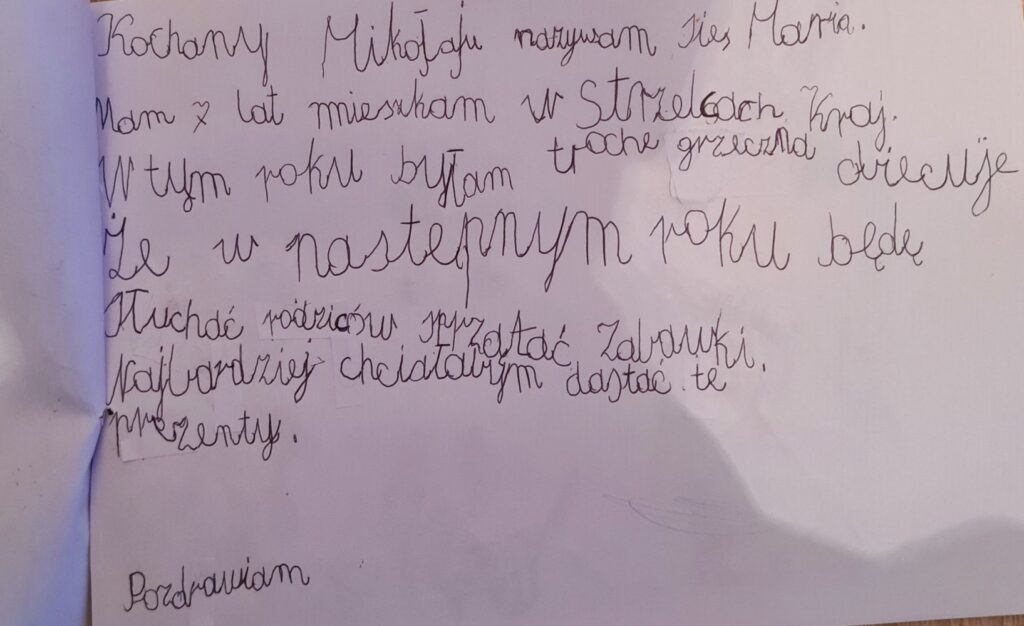 Kochany Mikołaju nazywam sięs Maria.
Mam 7 lat mieszkam w Strzelcach Kraj.
W tym roku byłam troche grzeczna obiecuje
Że w następnym roku będę
słuchać rodziców sprzątać zabawki.
Najbardziej chciałabym dastać te
prezenty.
Pozdrawiam